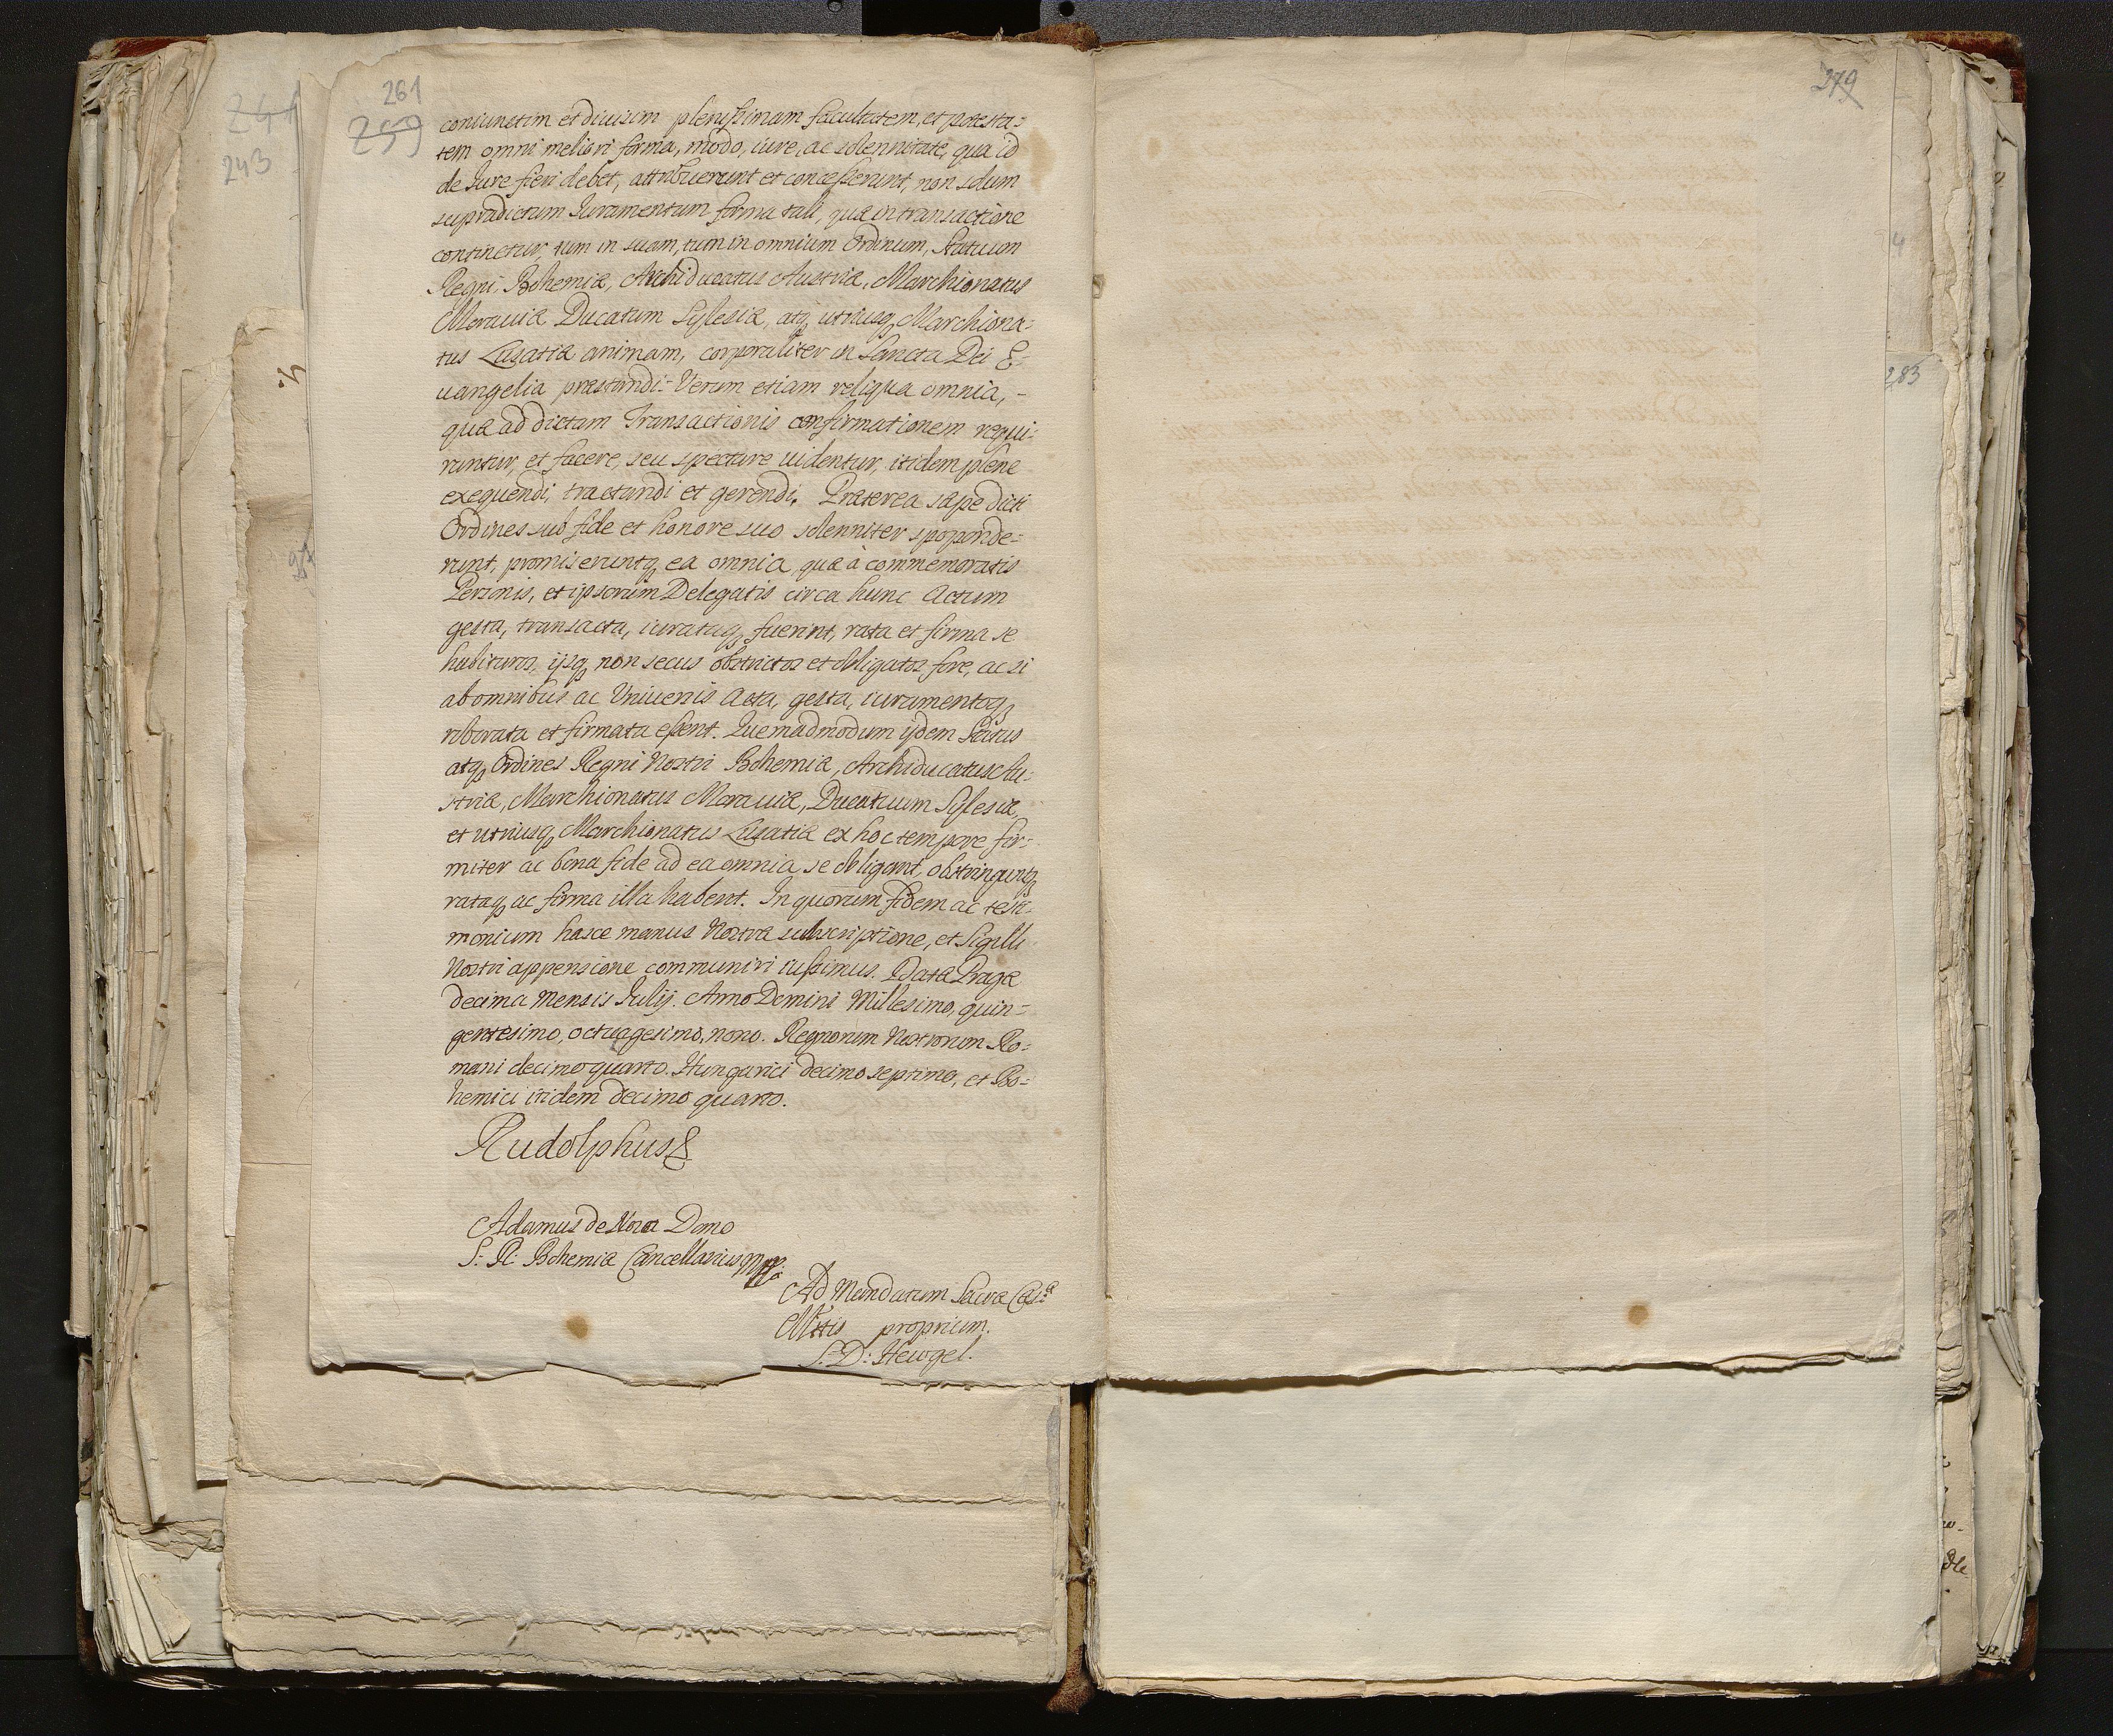 261
259
241
243
coniunctim et diuisim plenißimam facultatem, et potesta=
tem omni meliori forma, modo, iure, ac solennitate, qua id
de Jure fieri debet, attribuerunt et conceßerunt, non solum
supradictum Juramentum forma tali, qua in transactione
continetur, tum in suam, tum in omnium Ordinum, Statuum
Regni Bohemiæ, Archiducatus Austriæ, Marchionatus
Morauiæ Ducatum Sylesiæ, atq utriusq Marchiona=
tus Lusatiæ animam, corporaliter in Sancta Dei E=
uangelia præstandi: Verum etiam reliqua omnia, -
quæ ad dictam Transactionis confirmationem requi=
runtur, et facere, seu spectare uidentur, itidem plenè
exequendi, tractandi et gerendi. Præterea sæpe dicti
Ordines sub fide et honore suo solenniter sposponde=
runt, promiseruntq ea omnia quæ à commemoratis
Personis, et ipsorum Delegatis circa hunc Actum
gesta, transacta, iurataq fuerint, rata et firma se
habituros, ijsq non secus obstrictos et obligatos fore, ac si
ab omnibus ac Vniuersis acta, gesta, iuramentoq
roborata et firmata eßent. Quemadmodum ijdem Status
atq Ordines Regni Nostri Bohemiæ, Archiducatus Au=
striæ, Marchionatus Morauiæ, Ducatuum Sylesiæ,
et utriusq Marchionatus Lusatiæ ex hoc tempore fir=
miter ac bona fide ad ea omnia se obligant, obstringuntq
rataq ac firma illa habent. In quorum fidem ac testi=
monium hasce manus Nostræ subscriptione, et Sigilli
Nostri appensione communiri iußimus. Datæ Pragæ
decima Mensis Julij. Anno Domini Millesimo, quin=
gentesimo, octuagesimo, nono. Regnorum Nostrorum Ro=
mani decimo quarto. Hungarici decimo septimo, et Bo=
hemici itidem decimo quarto.
Rudolphus
Adamus de Noua Domo
S: R: Bohemiæ Cancellarius mppa
Ad Mandatum Sacræ Cæs:æ
Mttis proprium.
S: D: Heugel.
279
283